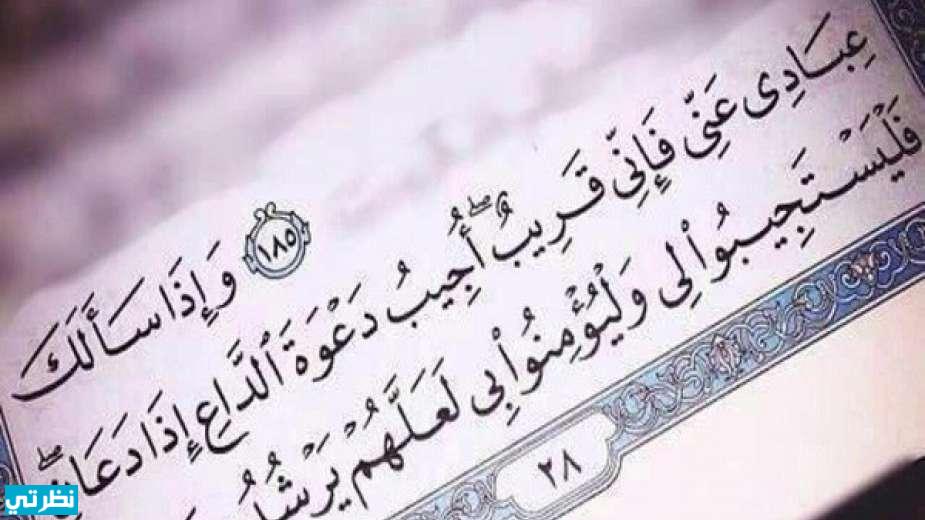 ١٨٥ وَإِذَا سَأَلَكَ
عِبَادِى عَنِّى فَإِنِّى قَرِيبٌ ۖ أُجِيبُ دَعْوَةَ ٱلدَّاعِ إِذَا دَعَانِ ۖ
فَلْيَسْتَجِيبُوا۟ لِى وَلْيُؤْمِنُوا۟ بِى لَعَلَّهُمْ
٢٨
نظرتي